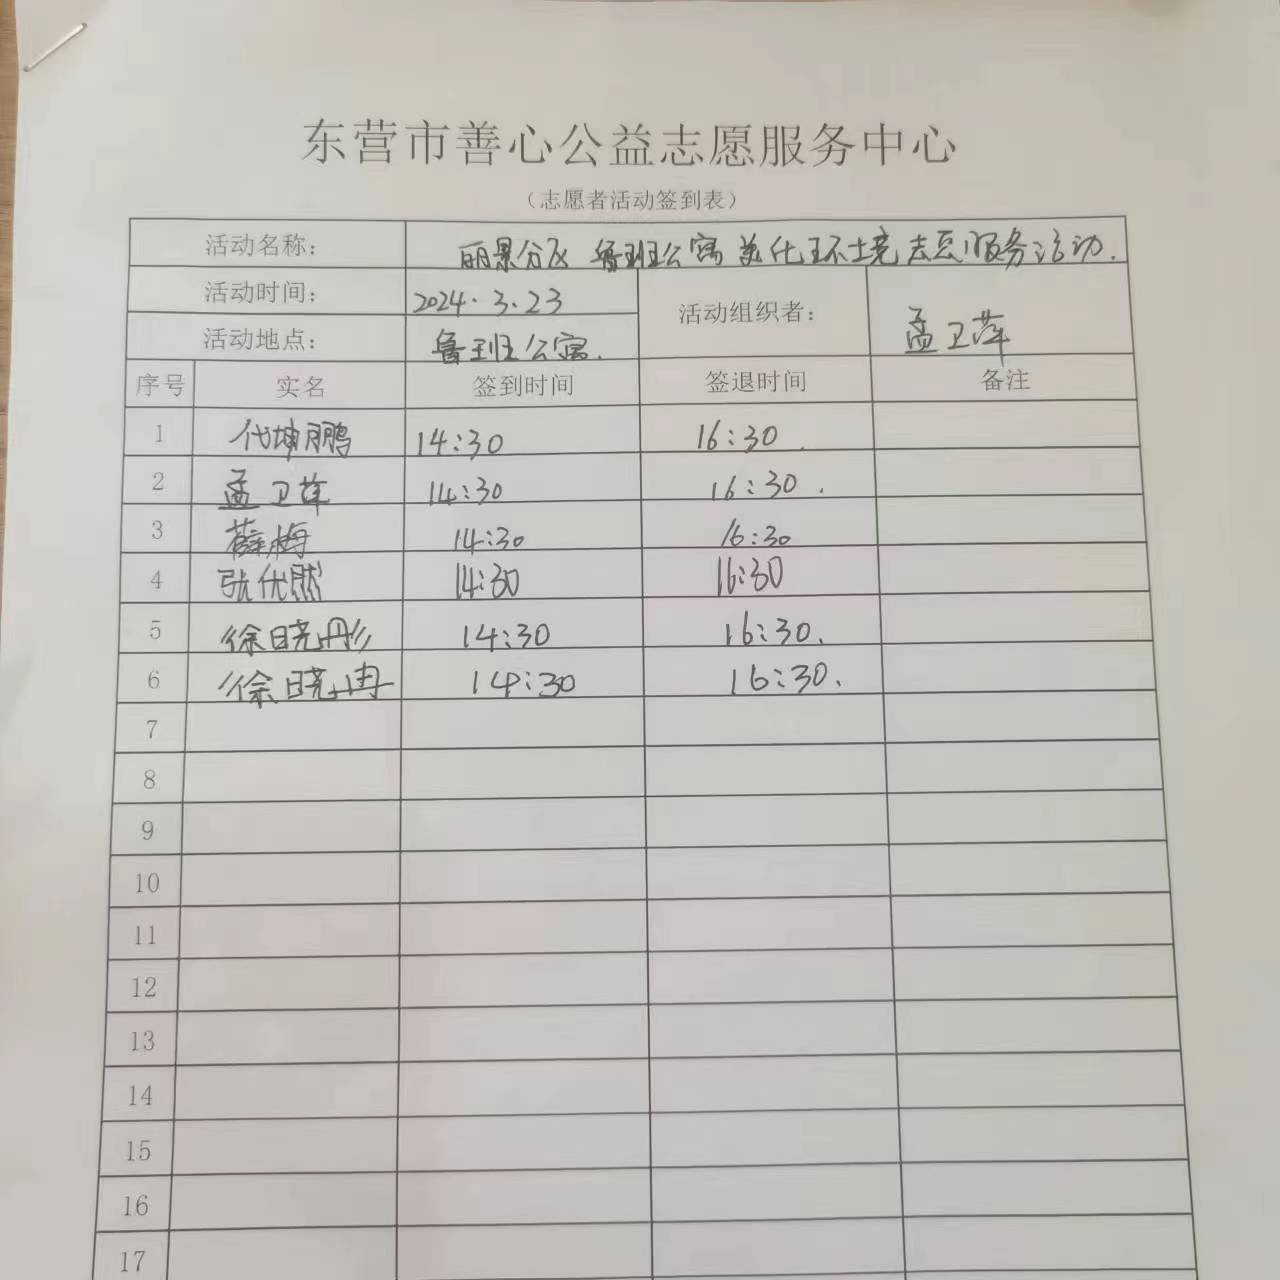 东营市善心公益志愿服务中心
（志愿者活动签到表）
活动名称： 丽景分区 鲁班公寓 美化环境志愿服务活动.
活动时间： 2024.3.23 活动组织者： 孟卫萍
活动地点： 鲁班公寓.
序号 实名 签到时间 签退时间 备注
1 代坤鹏 14:30 16:30.
2 孟卫萍 14:30 16:30.
3 薛梅 14:30 16:30
4 张优然 14:30 16:30
5 徐晓彤 14:30 16:30.
6 徐晓冉 14:30 16:30.
7
8
9
10
11
12
13
14
15
16
17